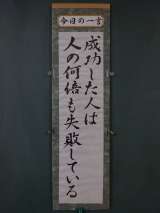 今日の一言
成功した人は
人の何倍も失敗している